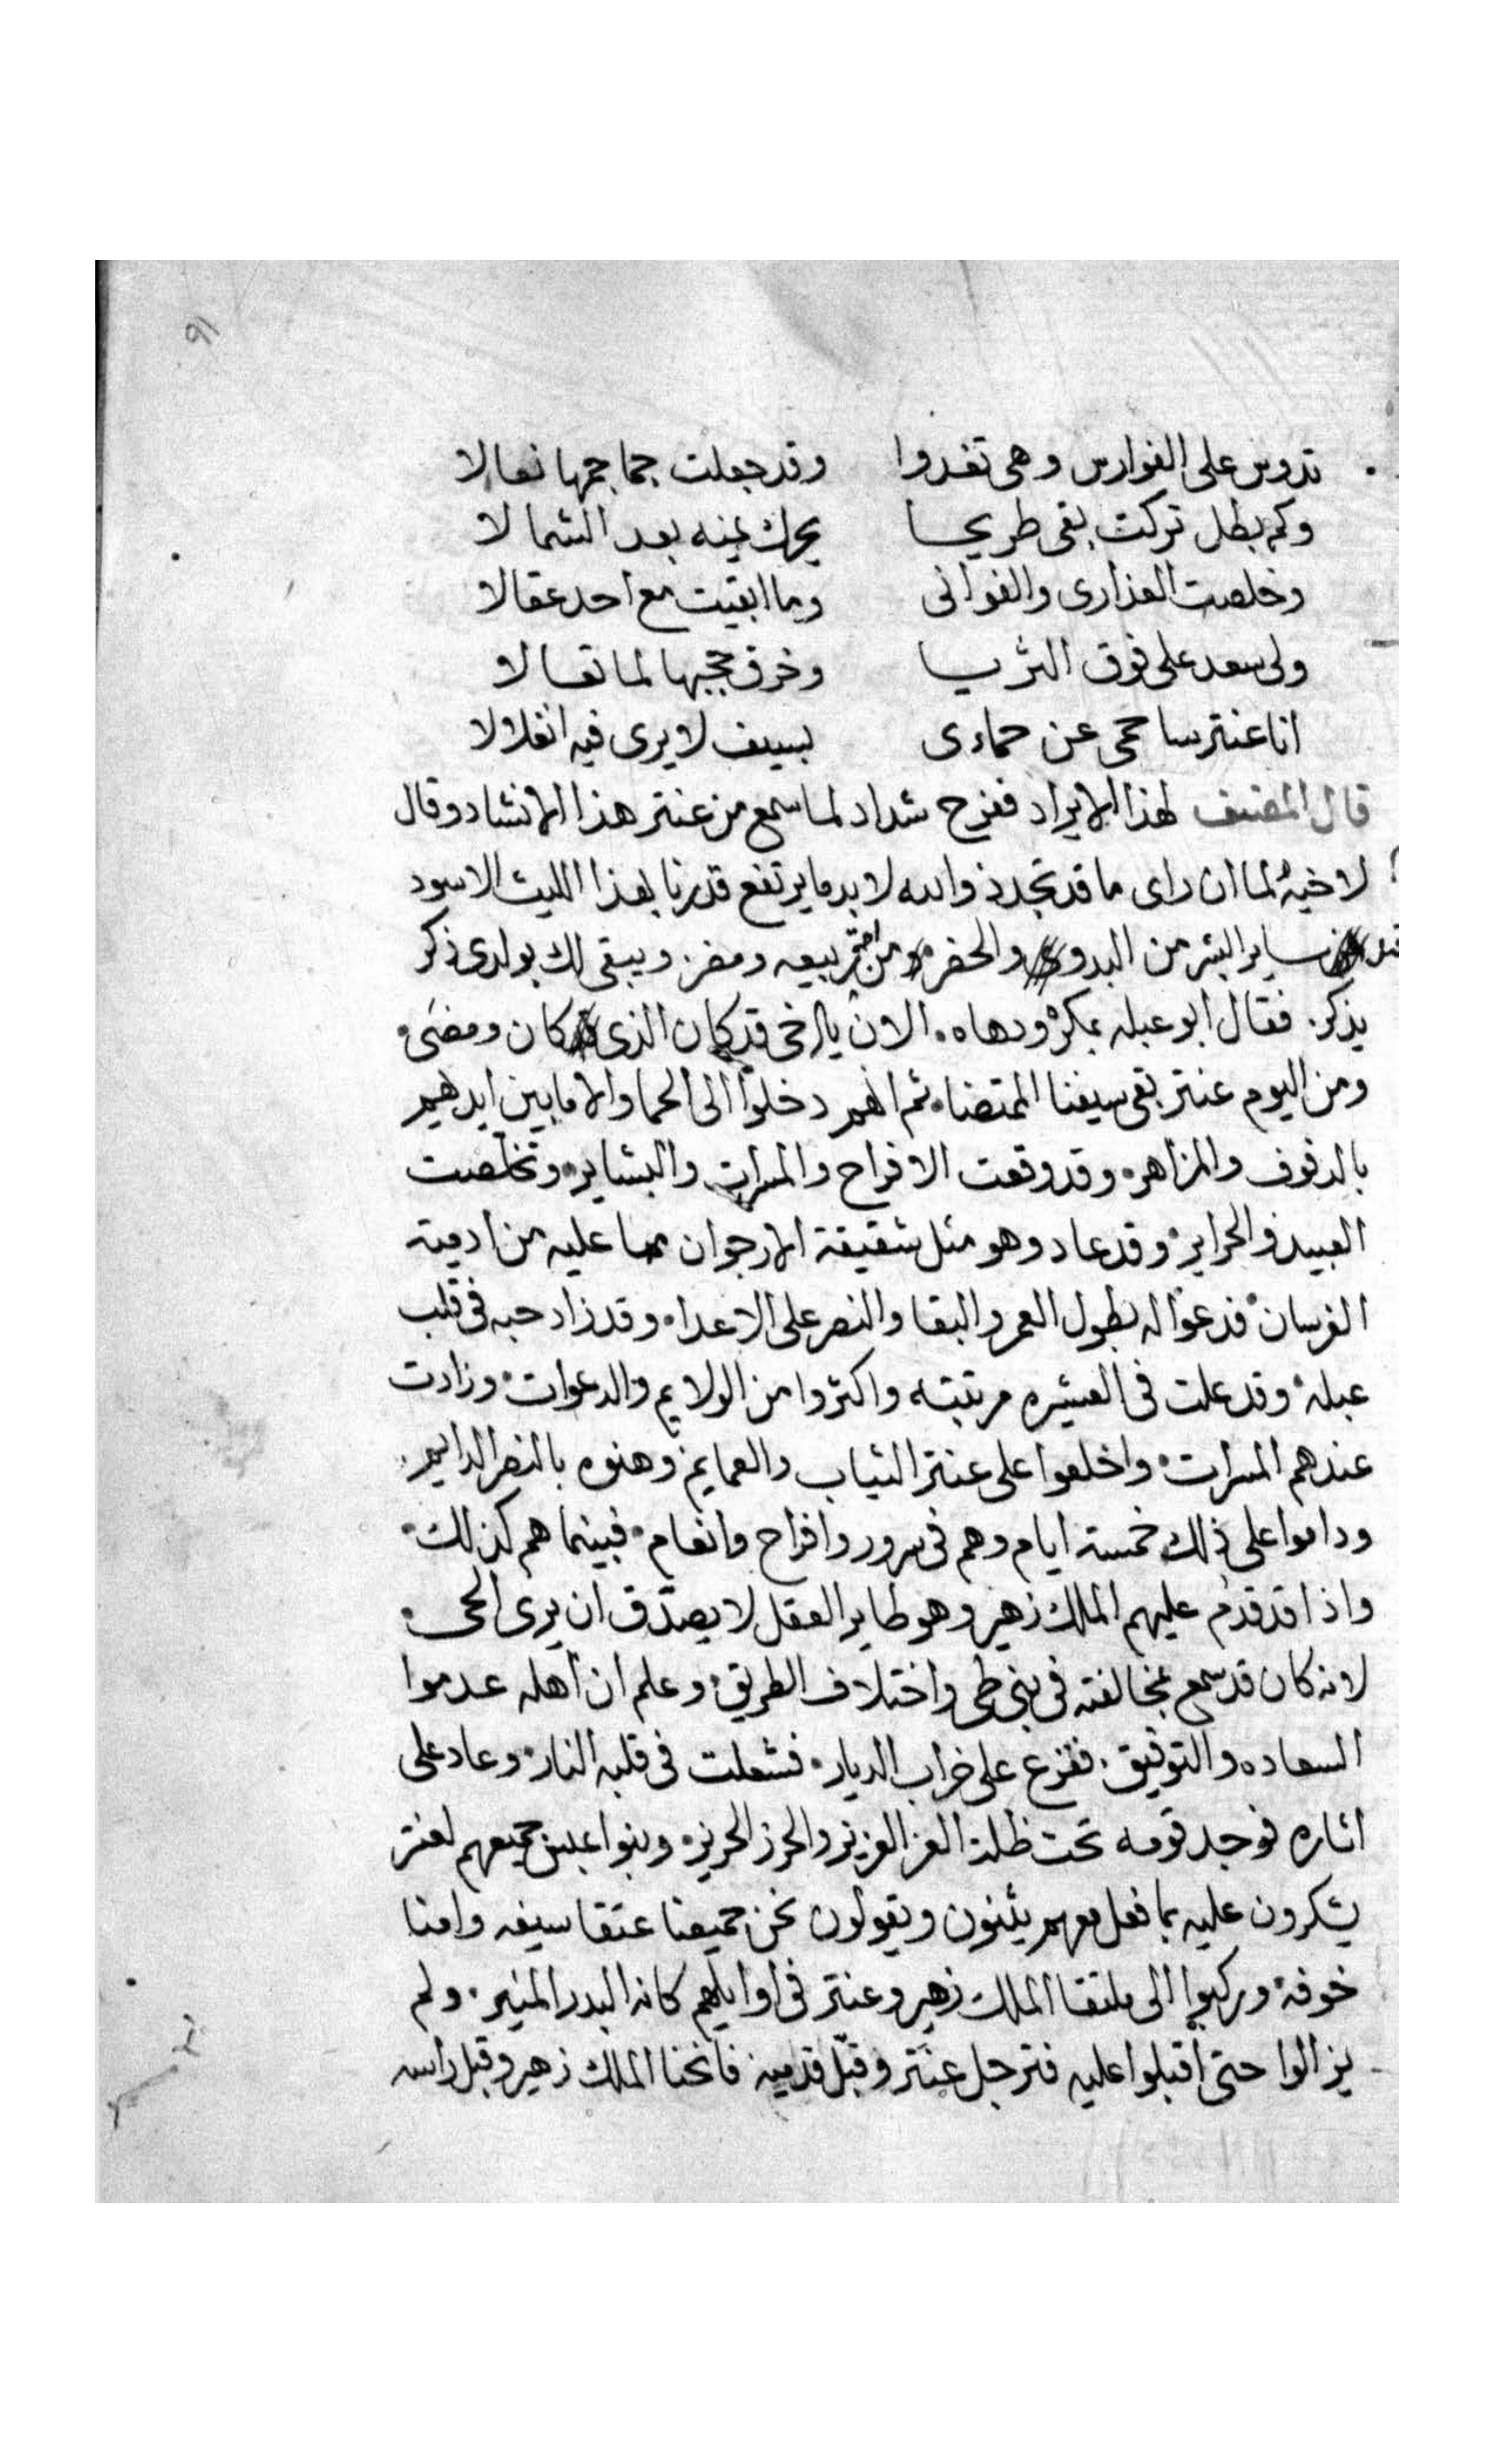 ٩١
تدوس على الفوارس وهى تغدوا وقد جعلت جماجمها نعالا
وكم بطل تركت بقى طريحا يحرك يمينه بعد الشمالا
وخلصت العذارى والغوانى وما ابقيت مع احد عقالا
ولى سعد على فوق الثريا وخرق حجبها لما تعالا
انا عنتر ساحمى عن حماءى بسيف لا يرى فيه انفلالا
قال المصنف لهذا الايراد ففرح شداد لما سمع من عنتر هذا الانشاد وقال
لاخيه لما ان راى ما قد تجدد والله لا بد ما يرتفع قدرنا بهذا الليث الاسود
عند ساير البشر من البدو والحضر ومن ربيعه ومضر. ويبقى لك بولدى ذكر
يذكر. فقال ابو عبله بمكره ودهاه. الان يا اخى قد كان الذى كان ومضى.
ومن اليوم عنتر بقى سيفنا المتضا. ثم انهم دخلوا الى الحما والاما بين ايديهم
بالدفوف والمزاهر. وقد وقعت الافراح والمسرات والبشاير. وتخلصت
العبيد والحراير. وقد عاد وهو مثل شقيقة الارجوان مما عليه من ادمية
الفرسان. فدعوا له بطول العمر والبقا والنصر على الاعدا. وقد زاد حبه فى قلب
عبله. وقد علت فى العشيره مرتبته واكثروا من الولايم والدعوات. وزادت
عندهم المسرات. واخلعوا على عنتر الثياب والعمايم. وهنوه بالنصر الدايم.
وداموا على ذلك خمسة ايام وهم فى سرور وافراح وانعام. فبينما هم كذلك.
واذا قد قدم عليهم الملك زهير وهو طاير العقل لا يصدق ان يرى الحى.
لانه كان قد سمع بمخالفته فى بنى طى واختلاف الطريق. وعلم ان اهله عدموا
السعاده والتوفيق. ففزع على خراب الديار. فشعلت فى قلبه النار. وعاد على
اثاره فوجد قومه تحت ظلة العز العزيز والحرز الحريز. وبنوا عبس جميعهم لعنتر
يشكرون عليه بما فعل معهم يثنون ويقولون نحن جميعنا عتقا سيفه وامنا
خوفه. وركبوا الى ملتقا الملك زهير وعنتر فى اوايلهم كانه البدر المنير. ولم
يزالوا حتى اقبلوا عليه فترجل عنتر وقبل قدميه فانحنا الملك زهير وقبل راسه